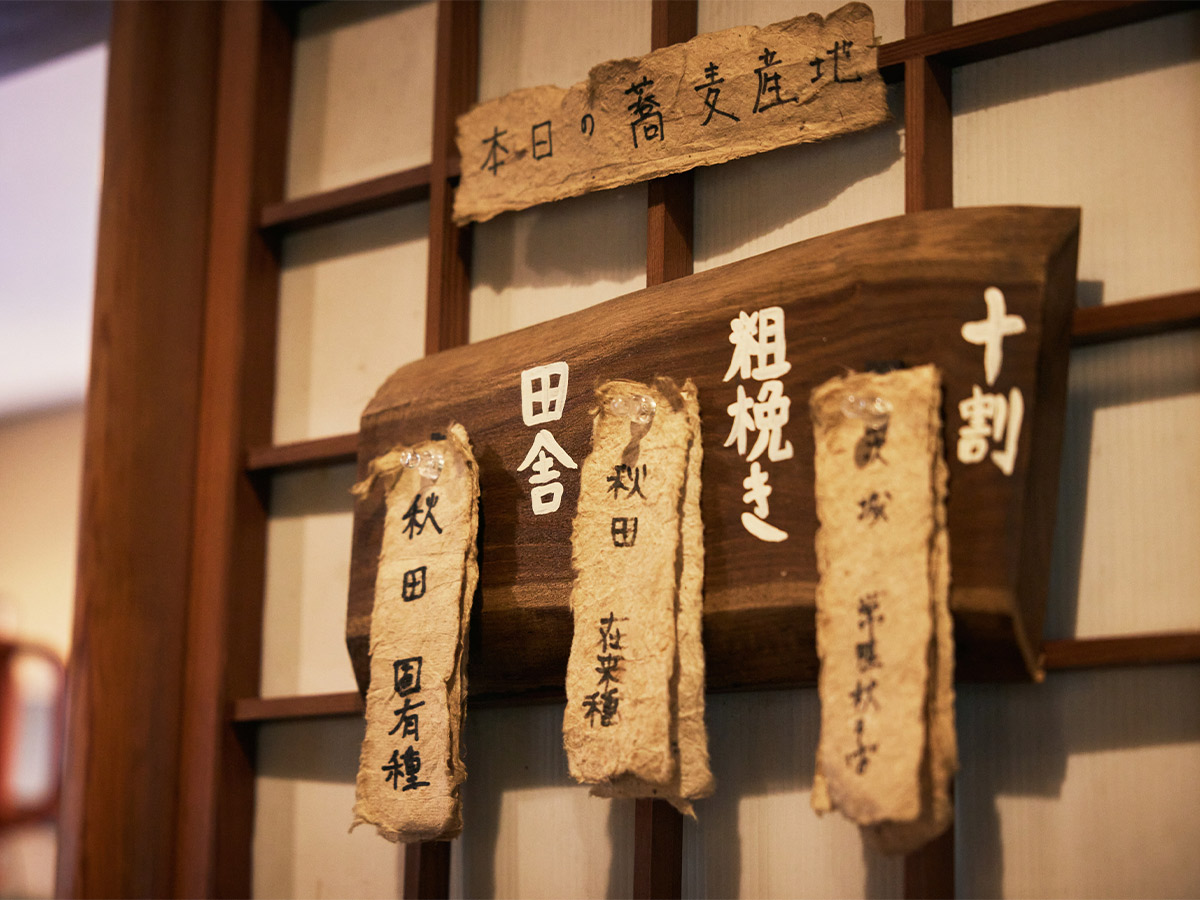 本日の蕎麦産地
十割
茨城
常陸秋そば
粗挽き
秋田
在来種
田舎
秋田
固有種